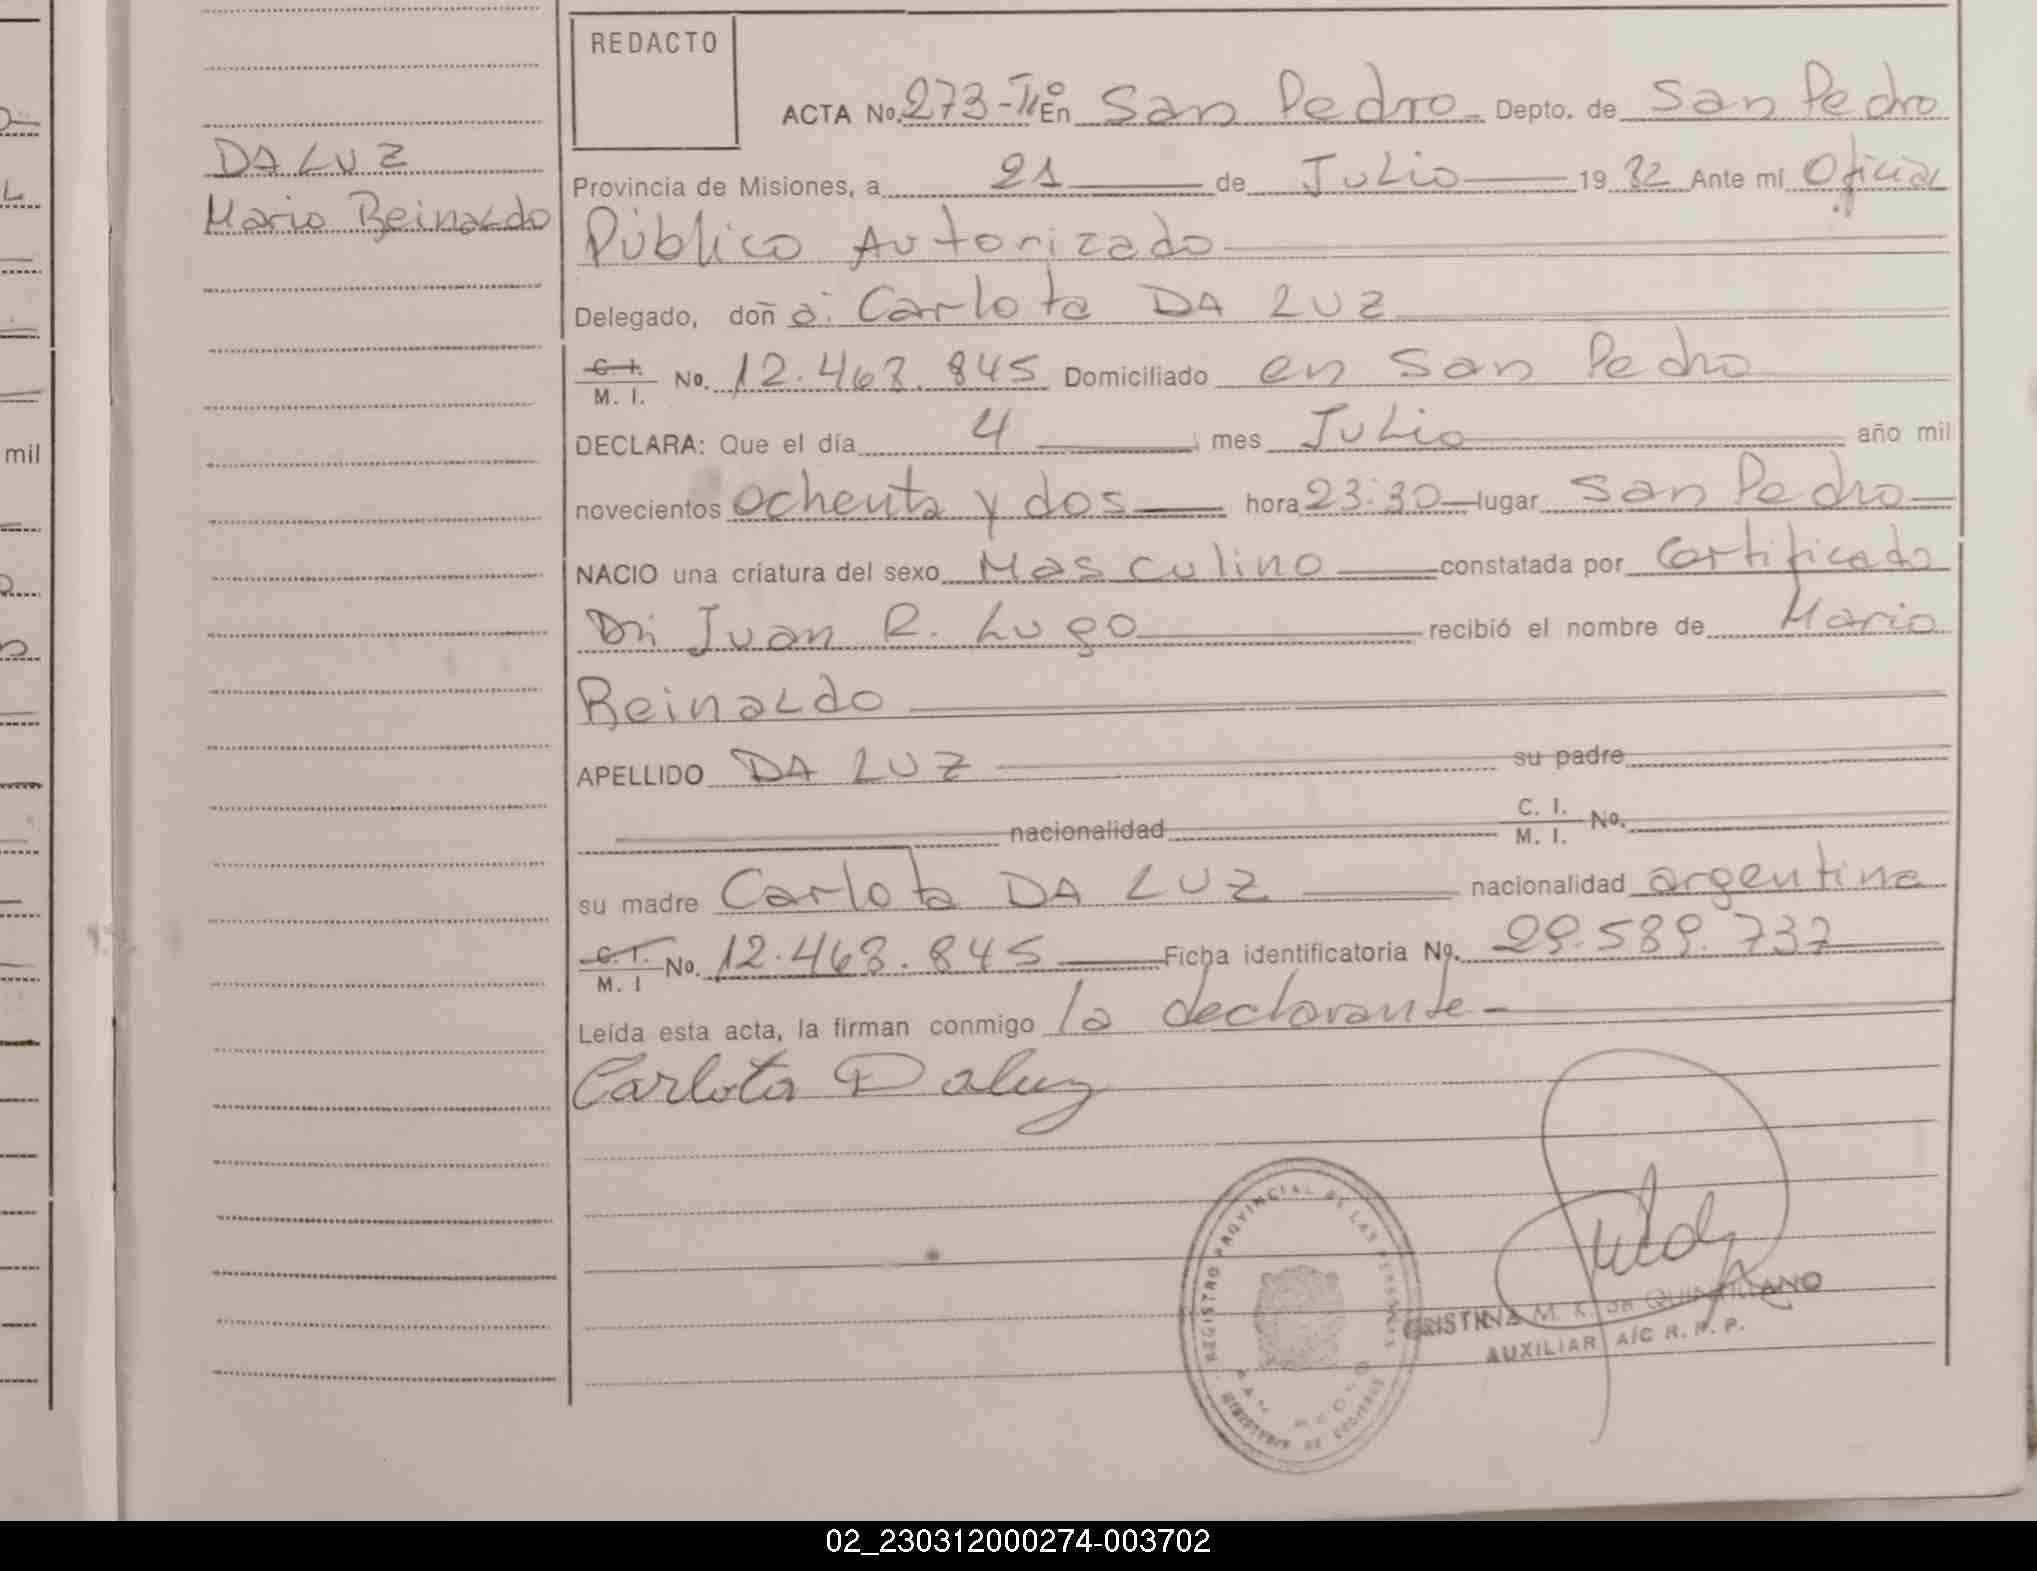 REDACTO
DA LUZ
Mario Reinaldo
ACTA No. 273-IIº En San Pedro Depto. de San Pedro
Provincia de Misiones, a 21 de Julio 19 82 Ante mí Oficial
Público Autorizado
Delegado, doñ a: Carlota DA LUZ
C. I. M. I. No. 12.468.845 Domiciliado en San Pedro
DECLARA: Que el día 4 mes Julio año mil
novecientos ochenta y dos hora 23:30 lugar San Pedro
NACIO una criatura del sexo Masculino constatada por Certificado
Dr. Juan R. Lugo recibió el nombre de Mario
Reinaldo
APELLIDO DA LUZ su padre
nacionalidad C. I. M. I. No.
su madre Carlota DA LUZ nacionalidad argentina
C. I. M. I No. 12.468.845 Ficha identificatoria No. 29.589.737
Leída esta acta, la firman conmigo la declarante-
Carlota Daluz
REGISTRO PROVINCIAL DE LAS PERSONAS
SAN PEDRO
MINISTERIO DE GOBIERNO
CRISTINA M. K. DE QUINTILLANO
AUXILIAR A/C R. P. P.
mil
02_230312000274-003702